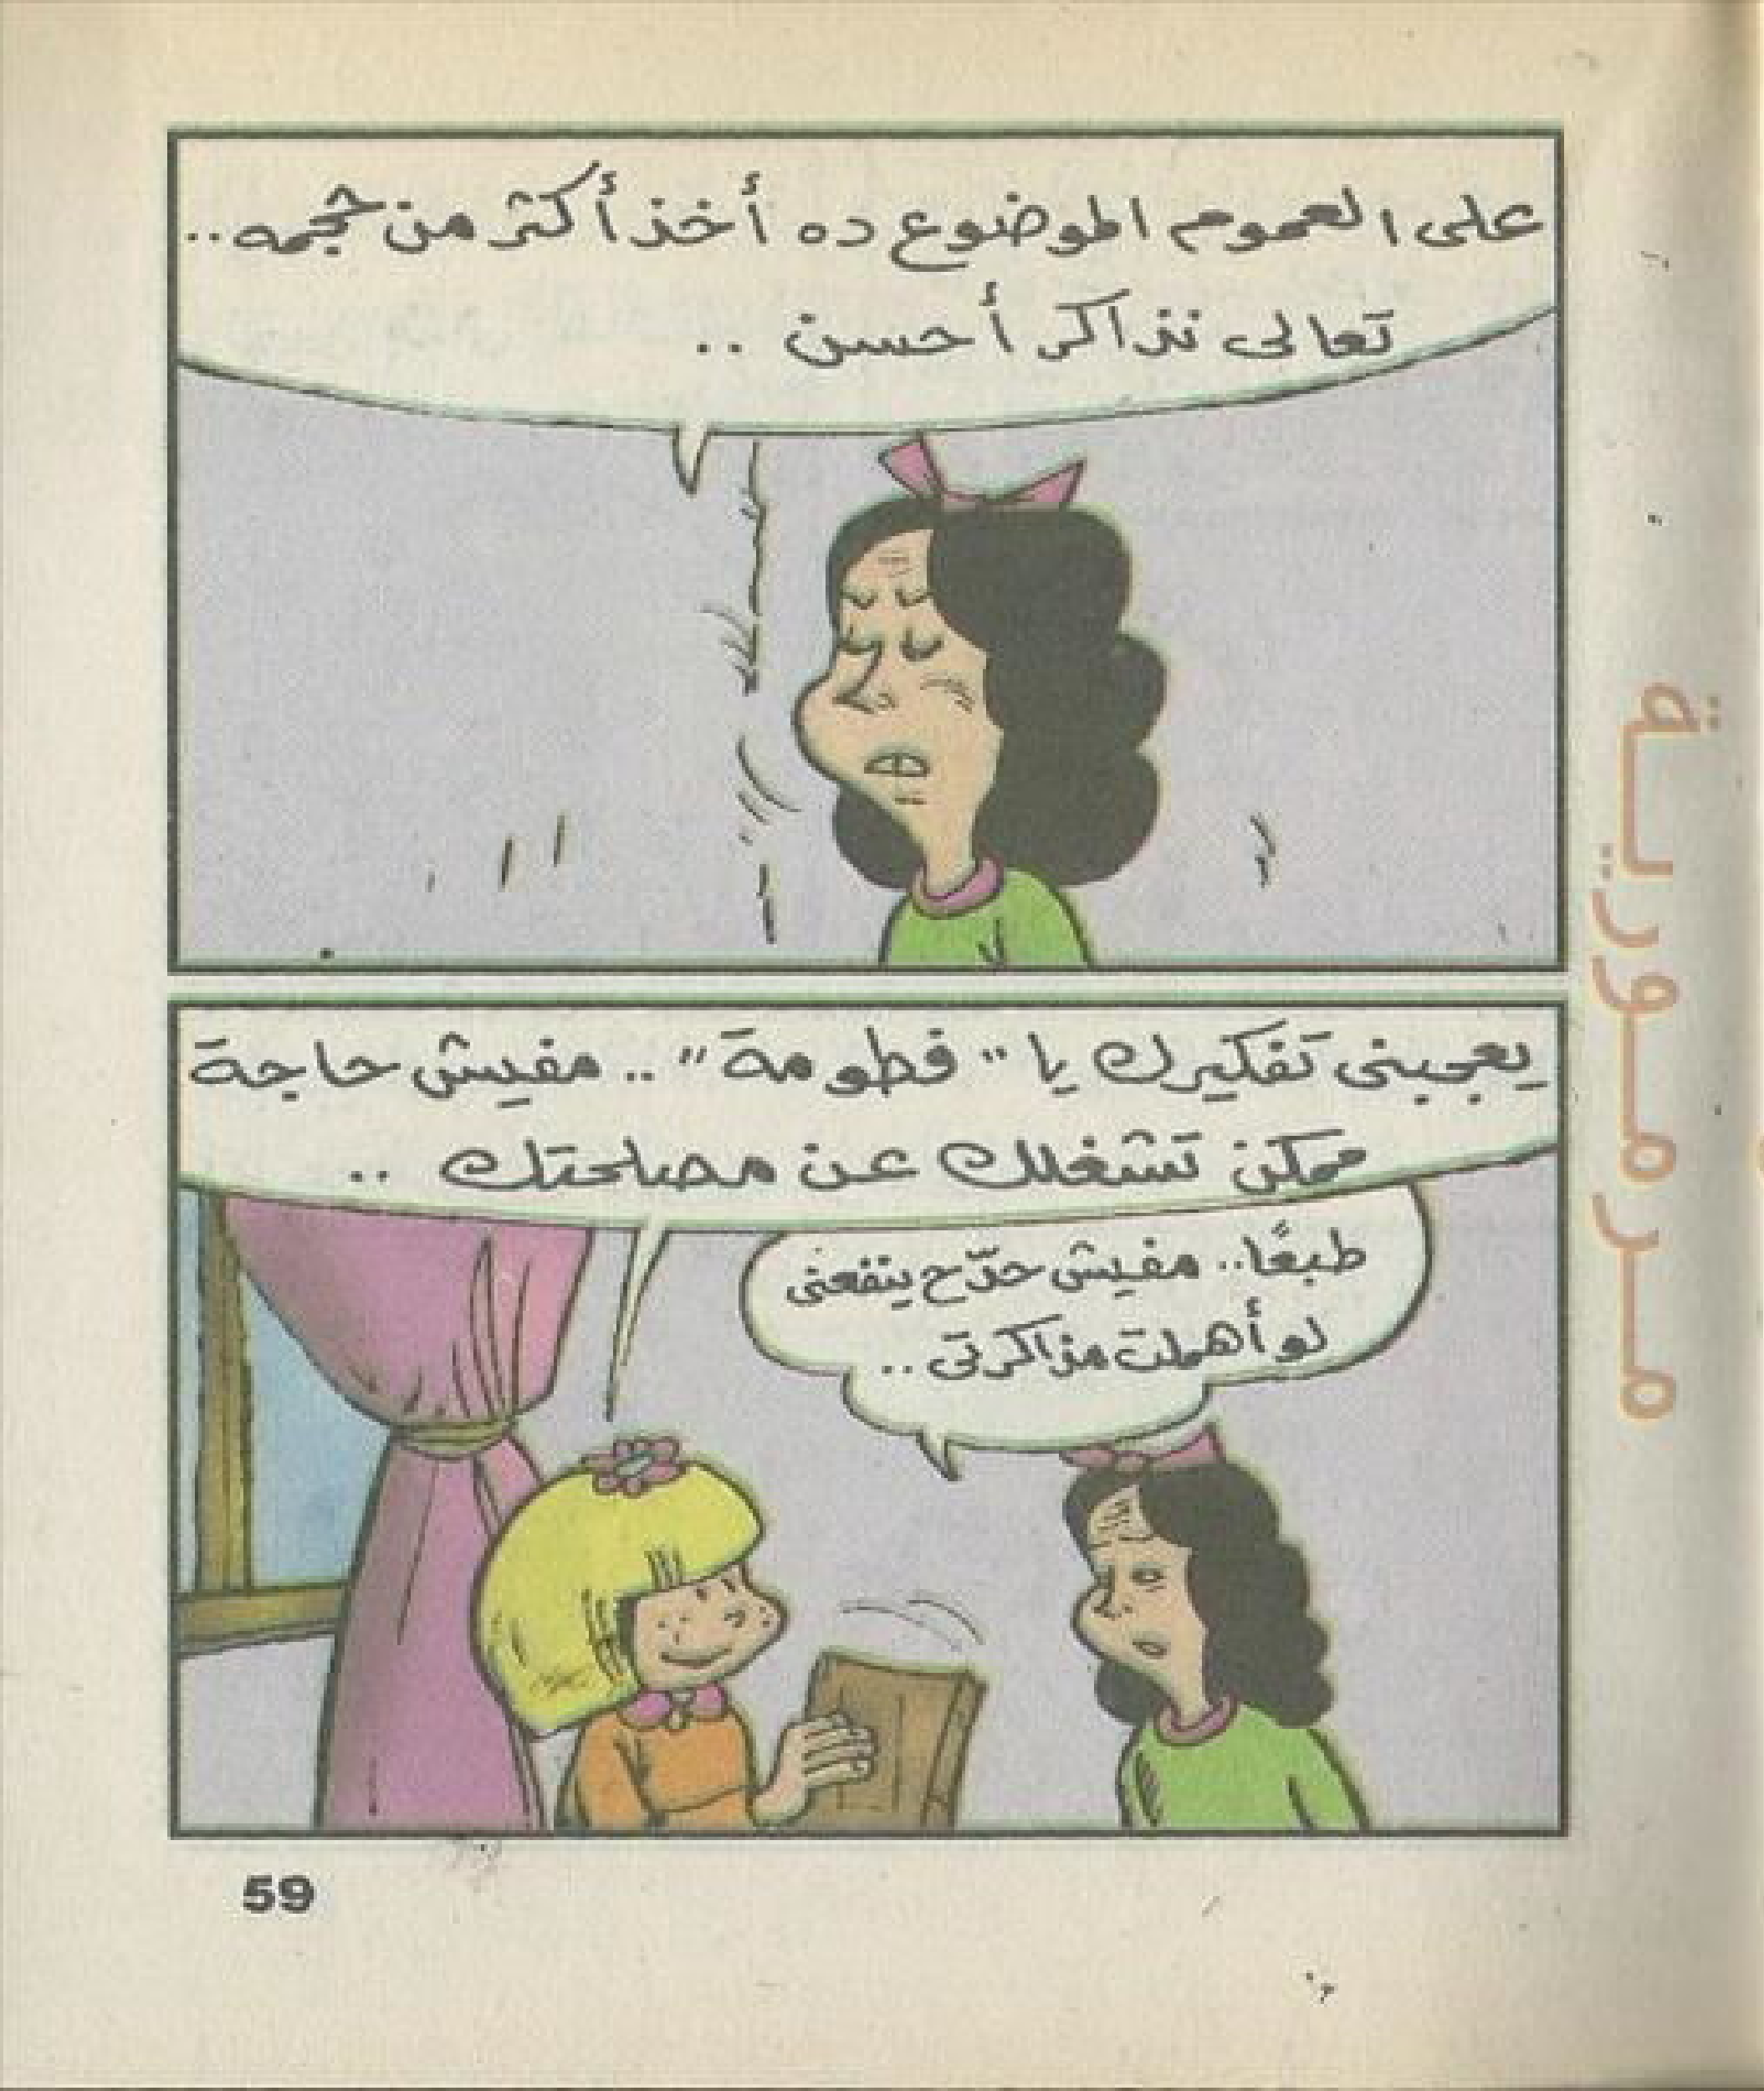 على العموم الموضوع ده أخذ أكثر من حجمه..
تعالى نذاكر أحسن ..
يعجبنى تفكيرك يا "فطومة" .. مفيش حاجة
ممكن تشغلك عن مصلحتك ..
طبعًا.. مفيش حدّ ح ينفعنى
لو أهملت مذاكرتى ..
مرمورية
59